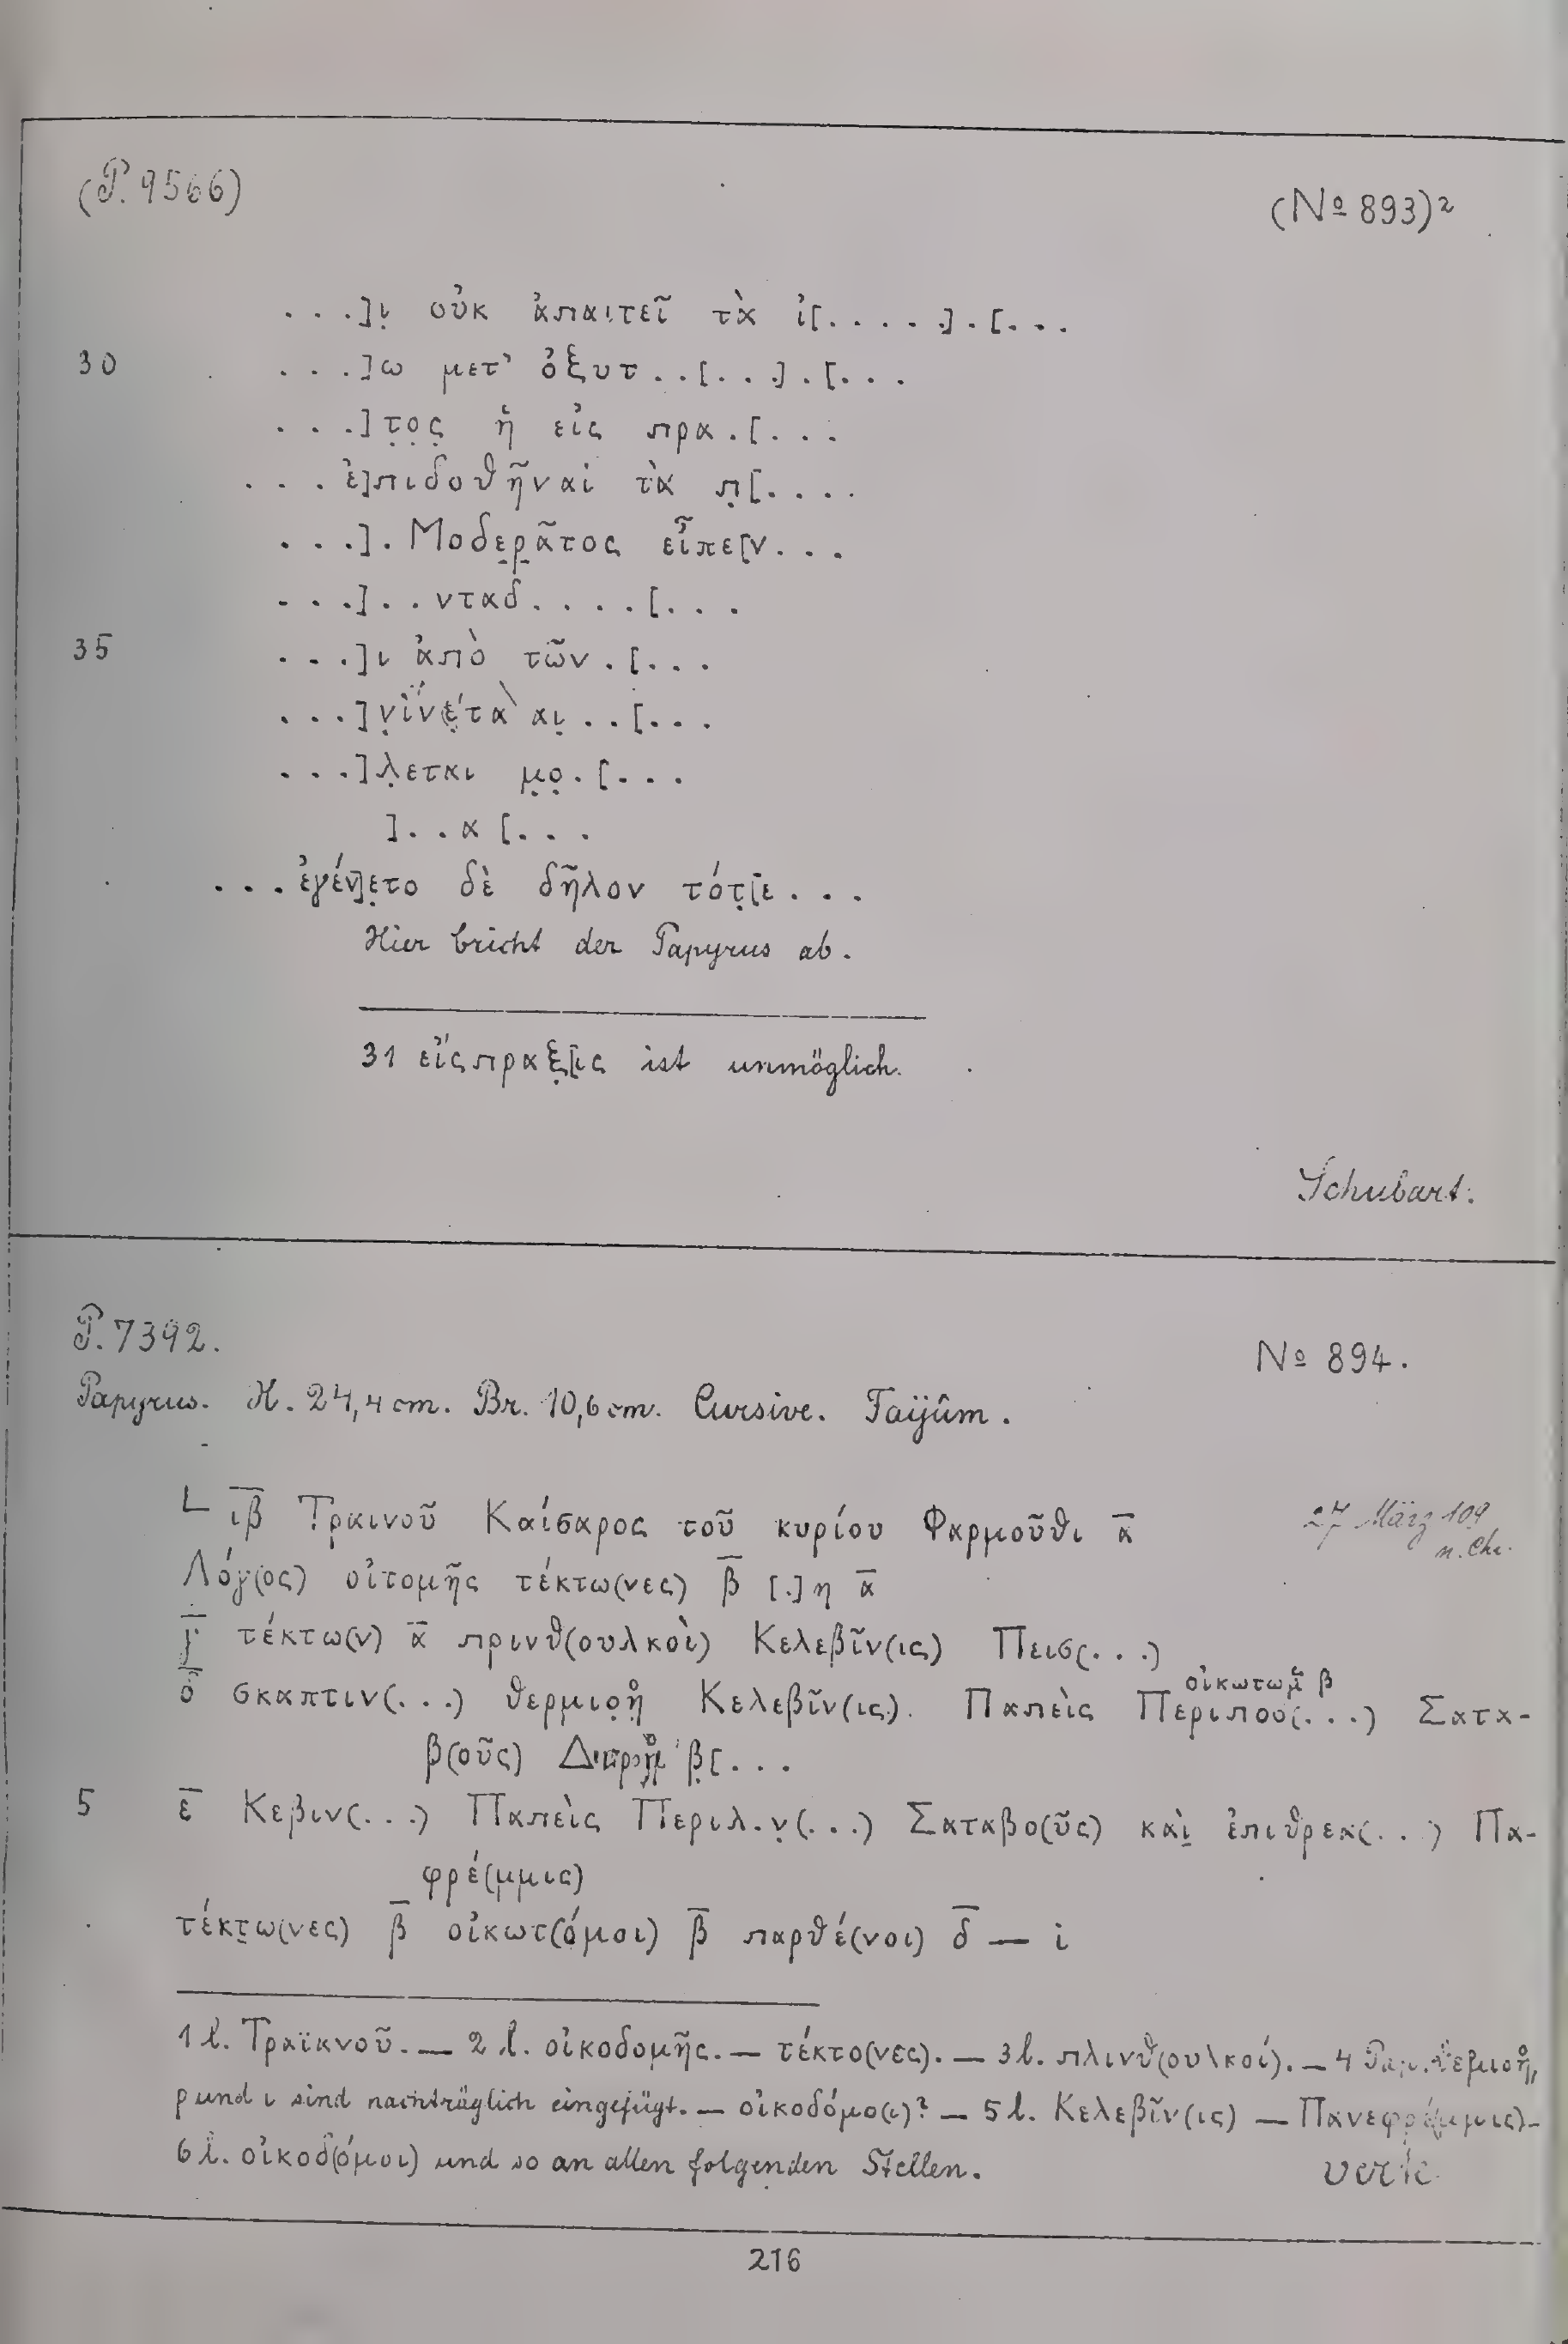 (P. 9566)
(№ 893)²
. . .]ι̣ οὐκ ἀπαιτεῖ τὰ ἰ[. . . . .] . [. . .
30 . . .]ω μετ’ ὀξυτ . . [. . .] . [. . .
. . .]τ̣ο̣ς̣ ἢ εἰς πρα . [. . .
. . . ἐ]πιδοθῆναί τὰ π̣[. . . .
. . .] . Μοδε̣ρ̣ᾶτος εἶπε[ν . . .
. . .] . . νταδ . . . . [. . .
35 . . .]ι ἀπὸ τῶν . [. . .
. . .] . . [. . .
. . .]λ̣εται μ̣ο̣ . [. . .
] . . α [. . .
. . . ἐγέν]ε̣το δὲ δῆλον τότ̣[ε . . .
Hier bricht der Papyrus ab.
31 εἴςπραξ̣[ις ist unmöglich.
Schubart.
P. 7392.
№ 894.
Papyrus. H. 24,4 cm. Br. 10,6 cm. Cursive. Faijûm.
∟ ι̅β̅ Τραινοῦ Καίσαρος τοῦ κυρίου Φαρμοῦθι α̅
27 März 109
n. Chr.
Λόγ(ος) οἰτομῆς τέκτω(νες) β̅ [.]η α̅
γ̅ τέκτω(ν) α̅ πρινθ(ουλκοὶ) Κελεβῖν(ις) Πεισ(. . .)
οἰκωτωμ β
δ̅ σκαπτιν(. . .) Κελεβῖν(ις). Παπεὶς Σατα-
β(οῦς) β̣[. . .
5 ε̅ Κεβιν(. . .) Παπεὶς Περιλ.ν̣(. . .) Σαταβο(ῦς) καὶ̣ ἐπιθρεα(. . .) Πα-
φρέ(μμις)
τέκτ̣ω(νες) β̅ οἰκωτ(όμοι) β̅ παρθέ(νοι) δ̅ — ι
1 l. Τραϊανοῦ. — 2 l. οἰκοδομῆς. — τέκτο(νες). — 3 l. πλινθ(ουλκοί). — 4 Pap.
ρ und ι sind nachträglich eingefügt. — οἰκοδόμο(ι)? — 5 l. Κελεβῖν(ις) — Πανεφρέ(μμις) —
6 l. οἰκοδ(όμοι) und so an allen folgenden Stellen.
verte
216